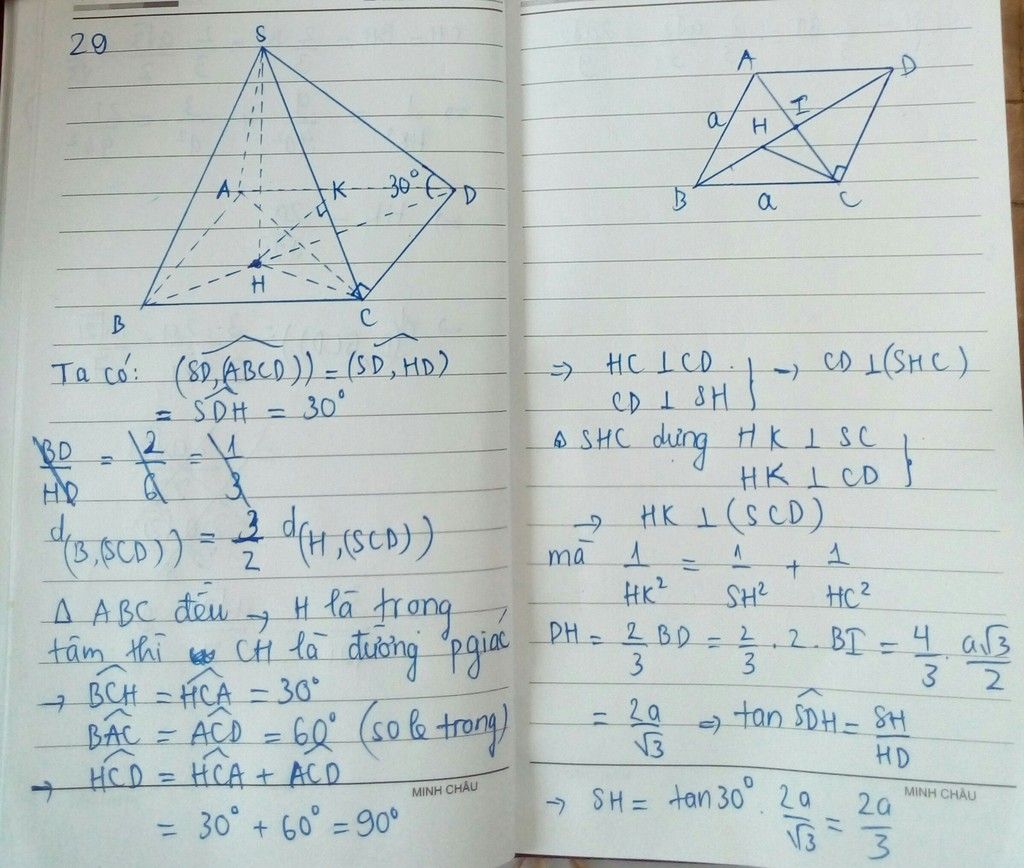 29
S
A
K
30°
D
H
B
C
Ta có: (SD,(ABCD)) = (SD,HD)
= SDH = 30°
BD/HD = 2/6 = 1/3
d(B,(SCD)) = 3/2 d(H,(SCD))
Δ ABC đều → H là trong
tâm thì CH là đường pgiác
→ BCH = HCA = 30°
BAC = ACD = 60° (so le trong)
→ HCD = HCA + ACD
MINH CHÂU
= 30° + 60° = 90°
A
D
I
a
H
B
a
C
⇒ HC ⊥ CD
CD ⊥ SH } → CD ⊥ (SHC)
Δ SHC dựng HK ⊥ SC
HK ⊥ CD }
→ HK ⊥ (SCD)
mà 1/HK² = 1/SH² + 1/HC²
DH = 2/3 BD = 2/3 . 2 . BI = 4/3 . a√3/2
= 2a/√3 ⇒ tan SDH = SH/HD
MINH CHÂU
→ SH = tan 30° . 2a/√3 = 2a/3